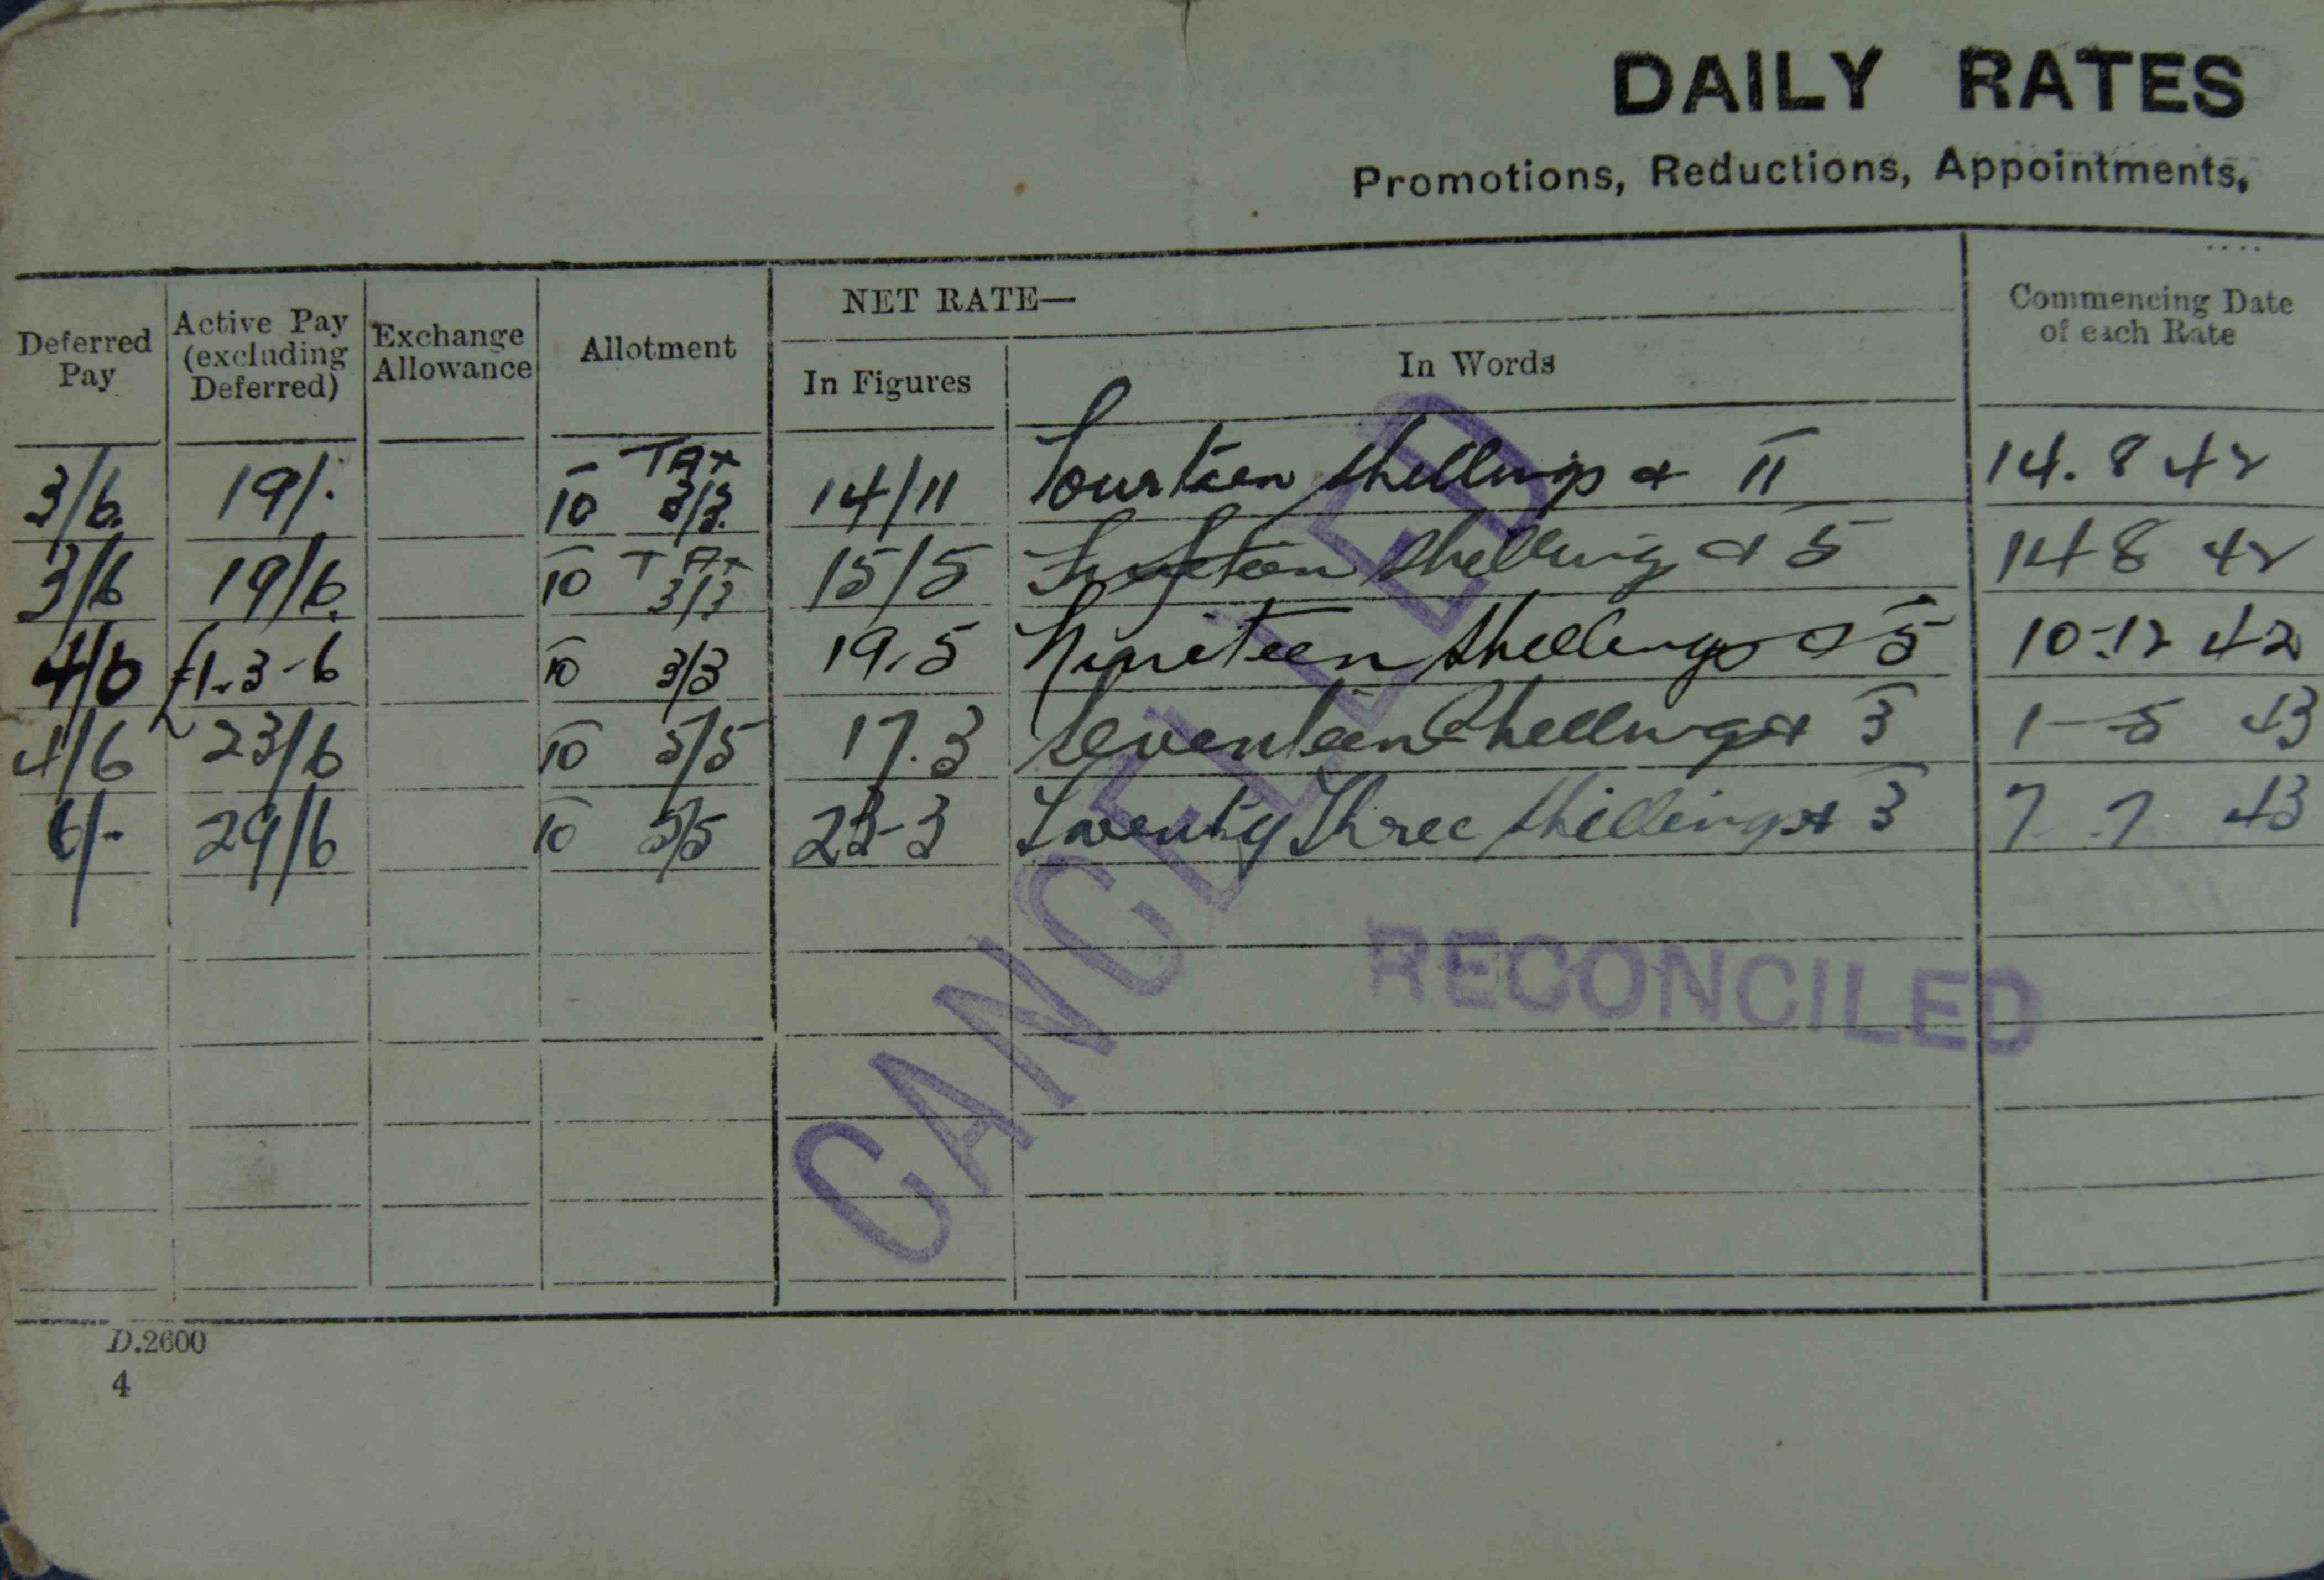 DAILY RATES
Promotions, Reductions, Appointments,
Deferred Pay
Active Pay (excluding Deferred)
Exchange Allowance
Allotment
NET RATE—
In Figures
In Words
Commencing Date of each Rate
3/6. 19/- 10 TAX 3/3. 14/11 Fourteen Shillings & 11 14. 8 42
3/6 19/6. 10 TAX 3/3 15/5 Fifteen Shillings & 5 14 8 42
4/6 £1.3-6 10 3/3 19.5 Nineteen Shillings & 5 10-12 42
4/6 23/6 10 5/5 17.3 Seventeen Shillings & 3 1-5 43
6/- 29/6 10 5/5 23-3 Twenty Three Shillings & 3 7 7 43
CANCELLED
RECONCILED
D.2600
4